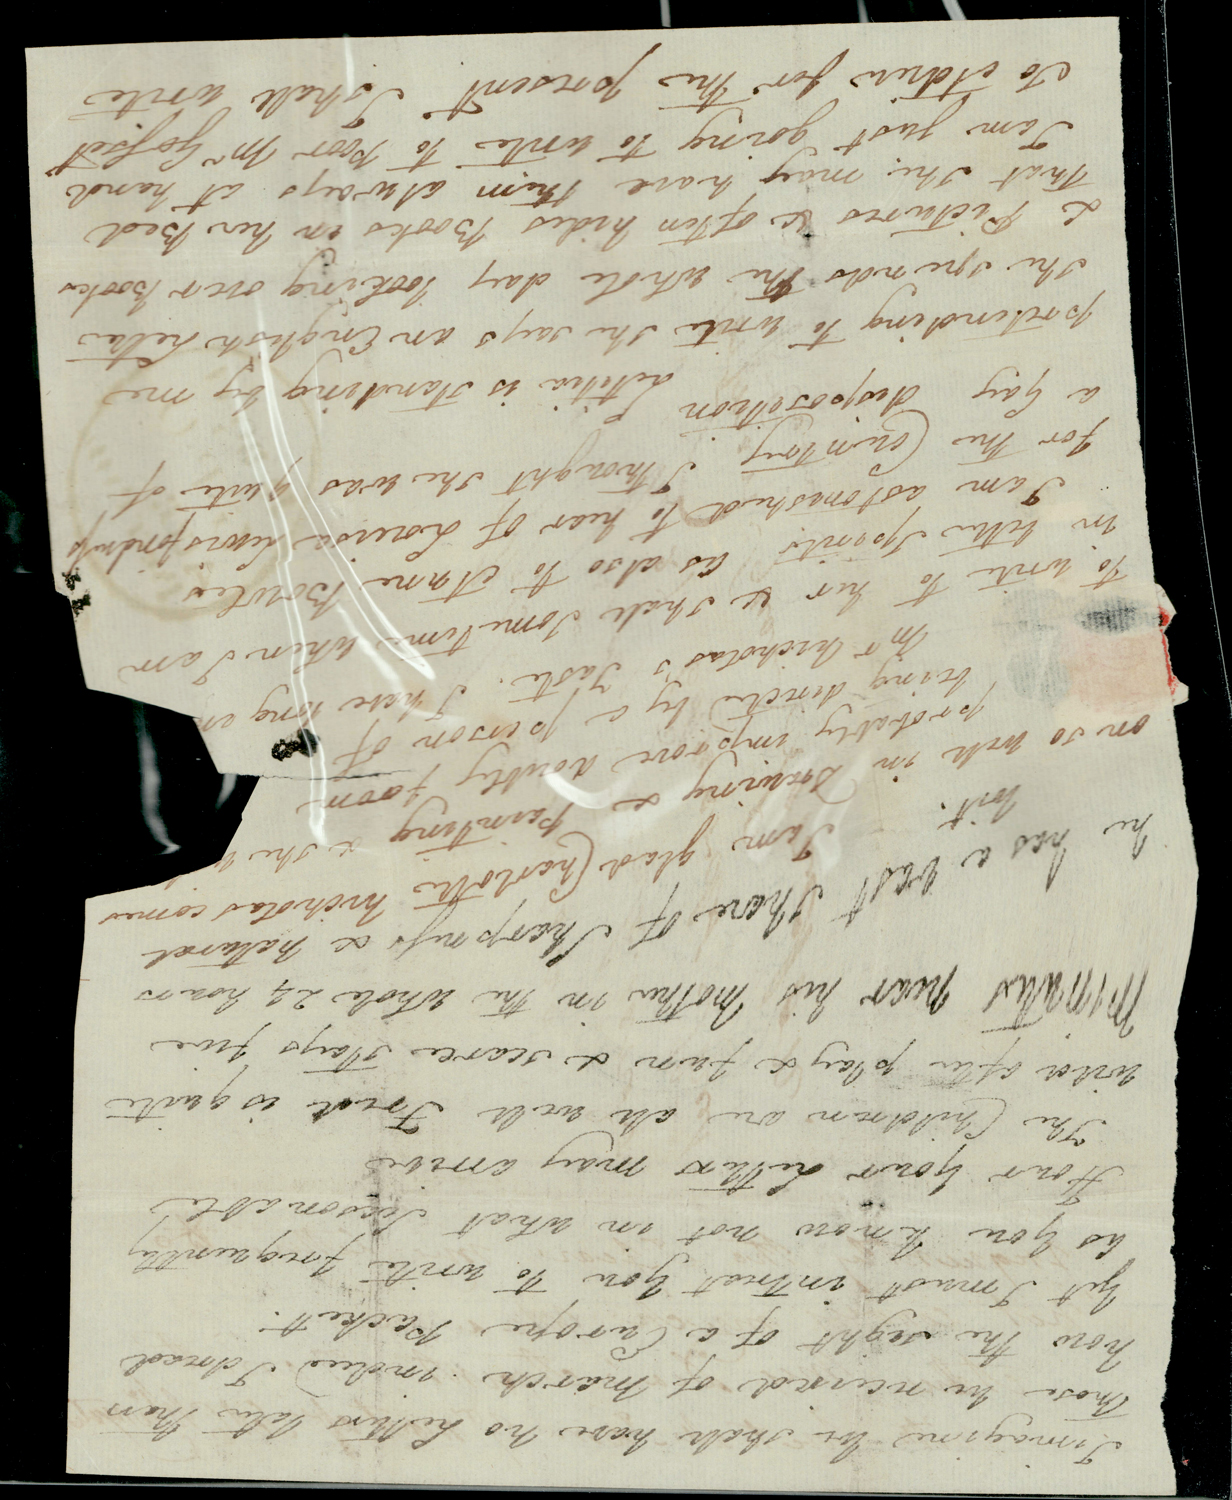 I imagine we shall have no Letters later than
those we received of March indeed I dread
now the sight of a Europe Packett.
Yet I must intreat you to write frequently
As you know not in what Seasonable
Hour your Letters may arrive
The Children are all well Fred is quite
wild after play & fun & scarce stays five
Minutes near his Mother in the whole 24 hours
he has a vast share of Sharpness & natural
wit.
I am glad Charlotte Nicholas comes
on so well in Drawing & Painting & she
probably improve doubly from
being directed by a person of
Mr Nicholas's Taste. I have long
to write to her & shall sometime when I am
in better Spirits as also to Anne Bowles
I am astonished to hear of Louisa
for the Country I thought she was quite of
a Gay disposition Letitia is standing by me
pretending to write she says an English Letter
she spends the whole day looking over Books
& Pictures & often hides Books in her Bed
that she may have them always at hand
I am just going to write to Poor Mr
to Adieu for the present I shall write